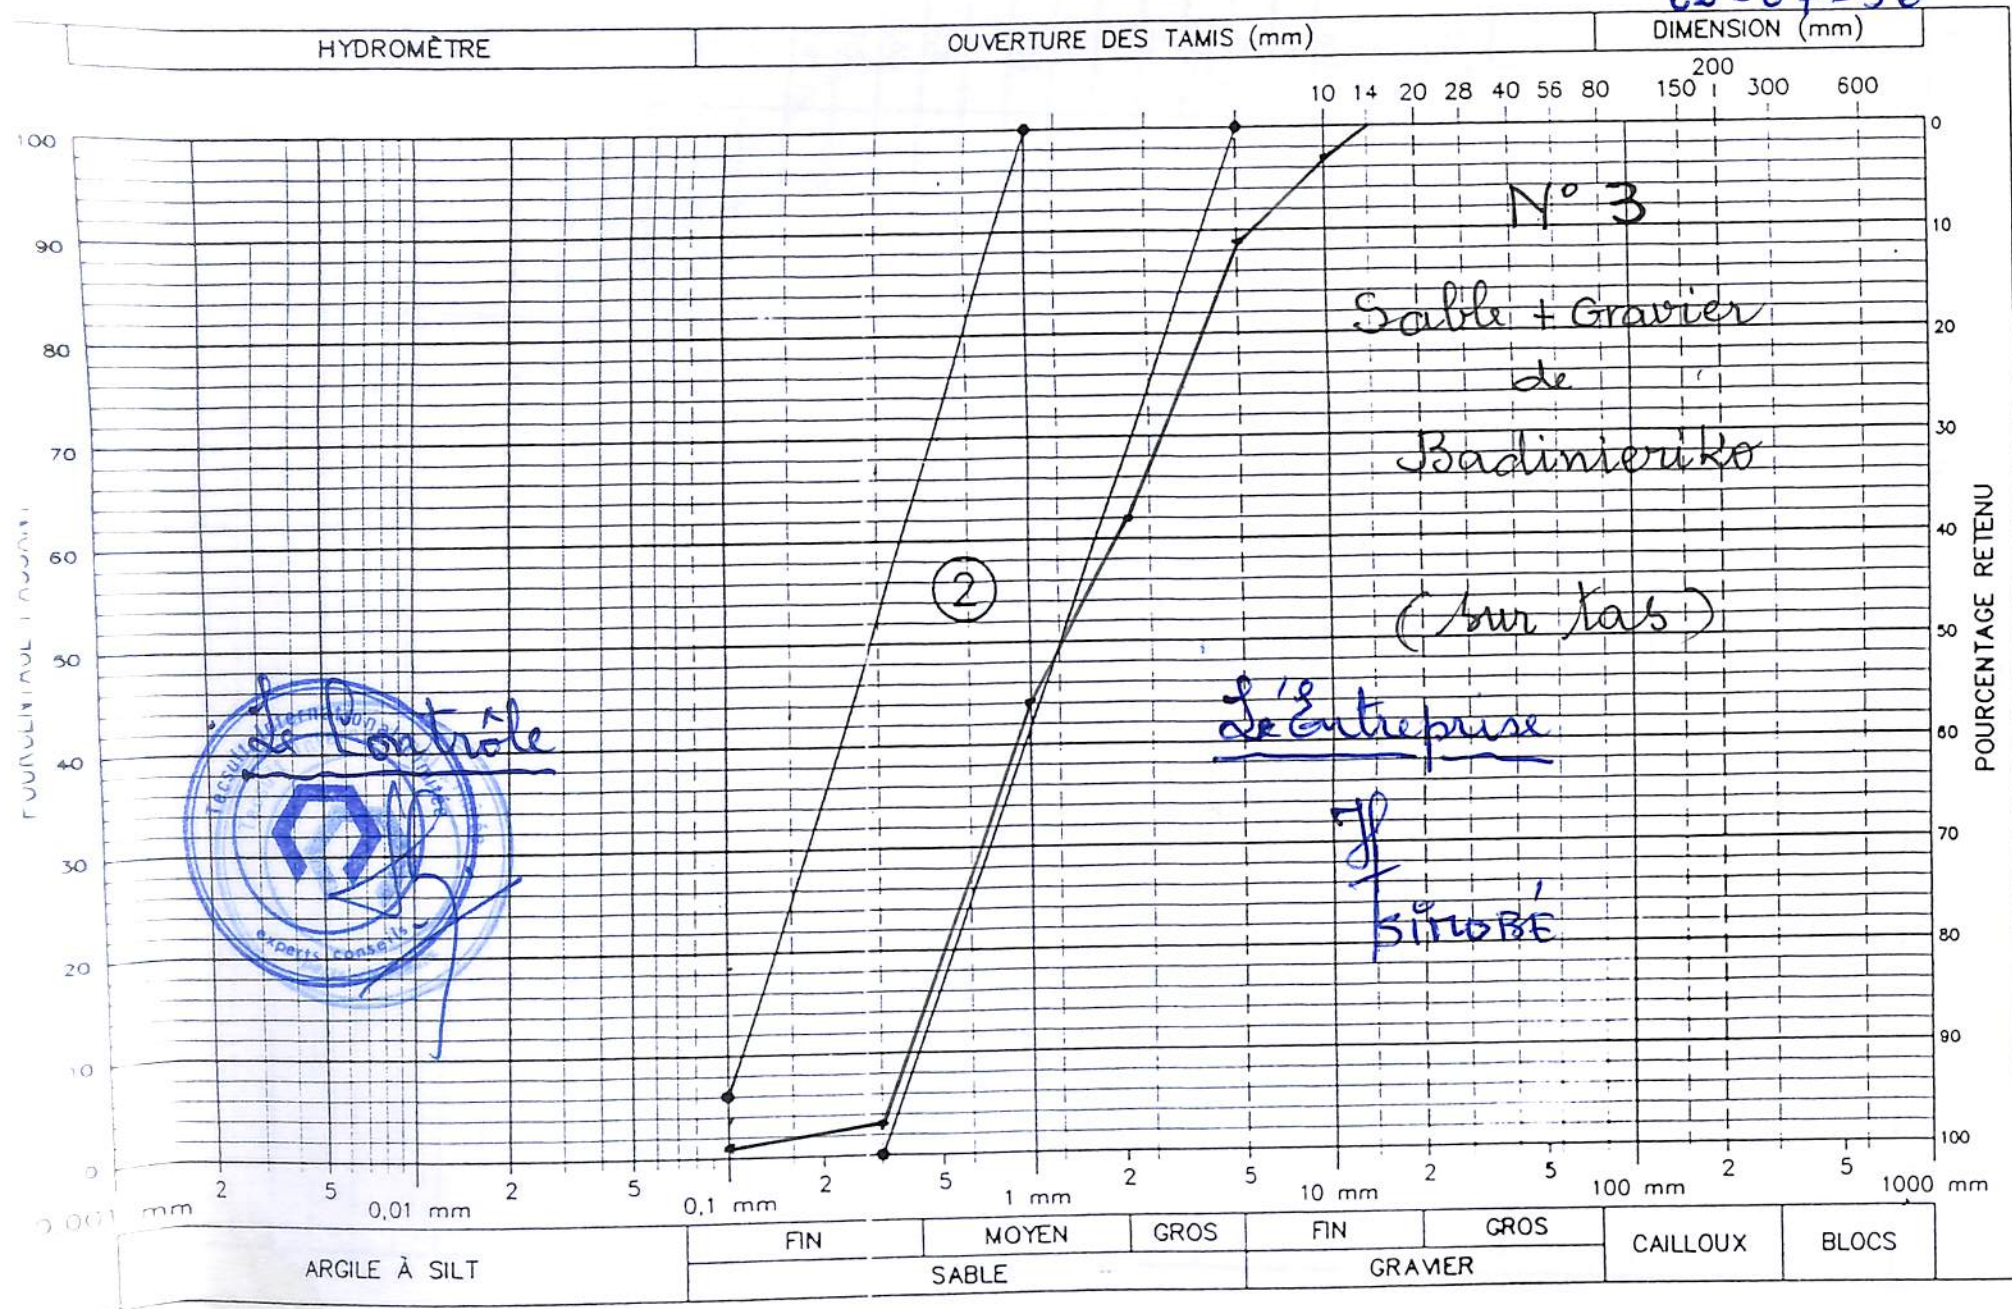 HYDROMÈTRE
OUVERTURE DES TAMIS (mm)
DIMENSION (mm)
10 14 20 28 40 56 80 150 200 300 600
100
90
80
70
60
50
40
30
20
10
0
0
10
20
30
40
50
60
70
80
90
100
POURCENTAGE RETENU
N° 3
Sable + Gravier
de
Badinieriko
(sur tas)
2
Le Contrôle
L'Entreprise
experts conseils
0,001 mm 2 5 0,01 mm 2 5 0,1 mm 2 5 1 mm 2 5 10 mm 2 5 100 mm 2 5 1000 mm
ARGILE À SILT
FIN
MOYEN
GROS
SABLE
FIN
GROS
GRAVIER
CAILLOUX
BLOCS